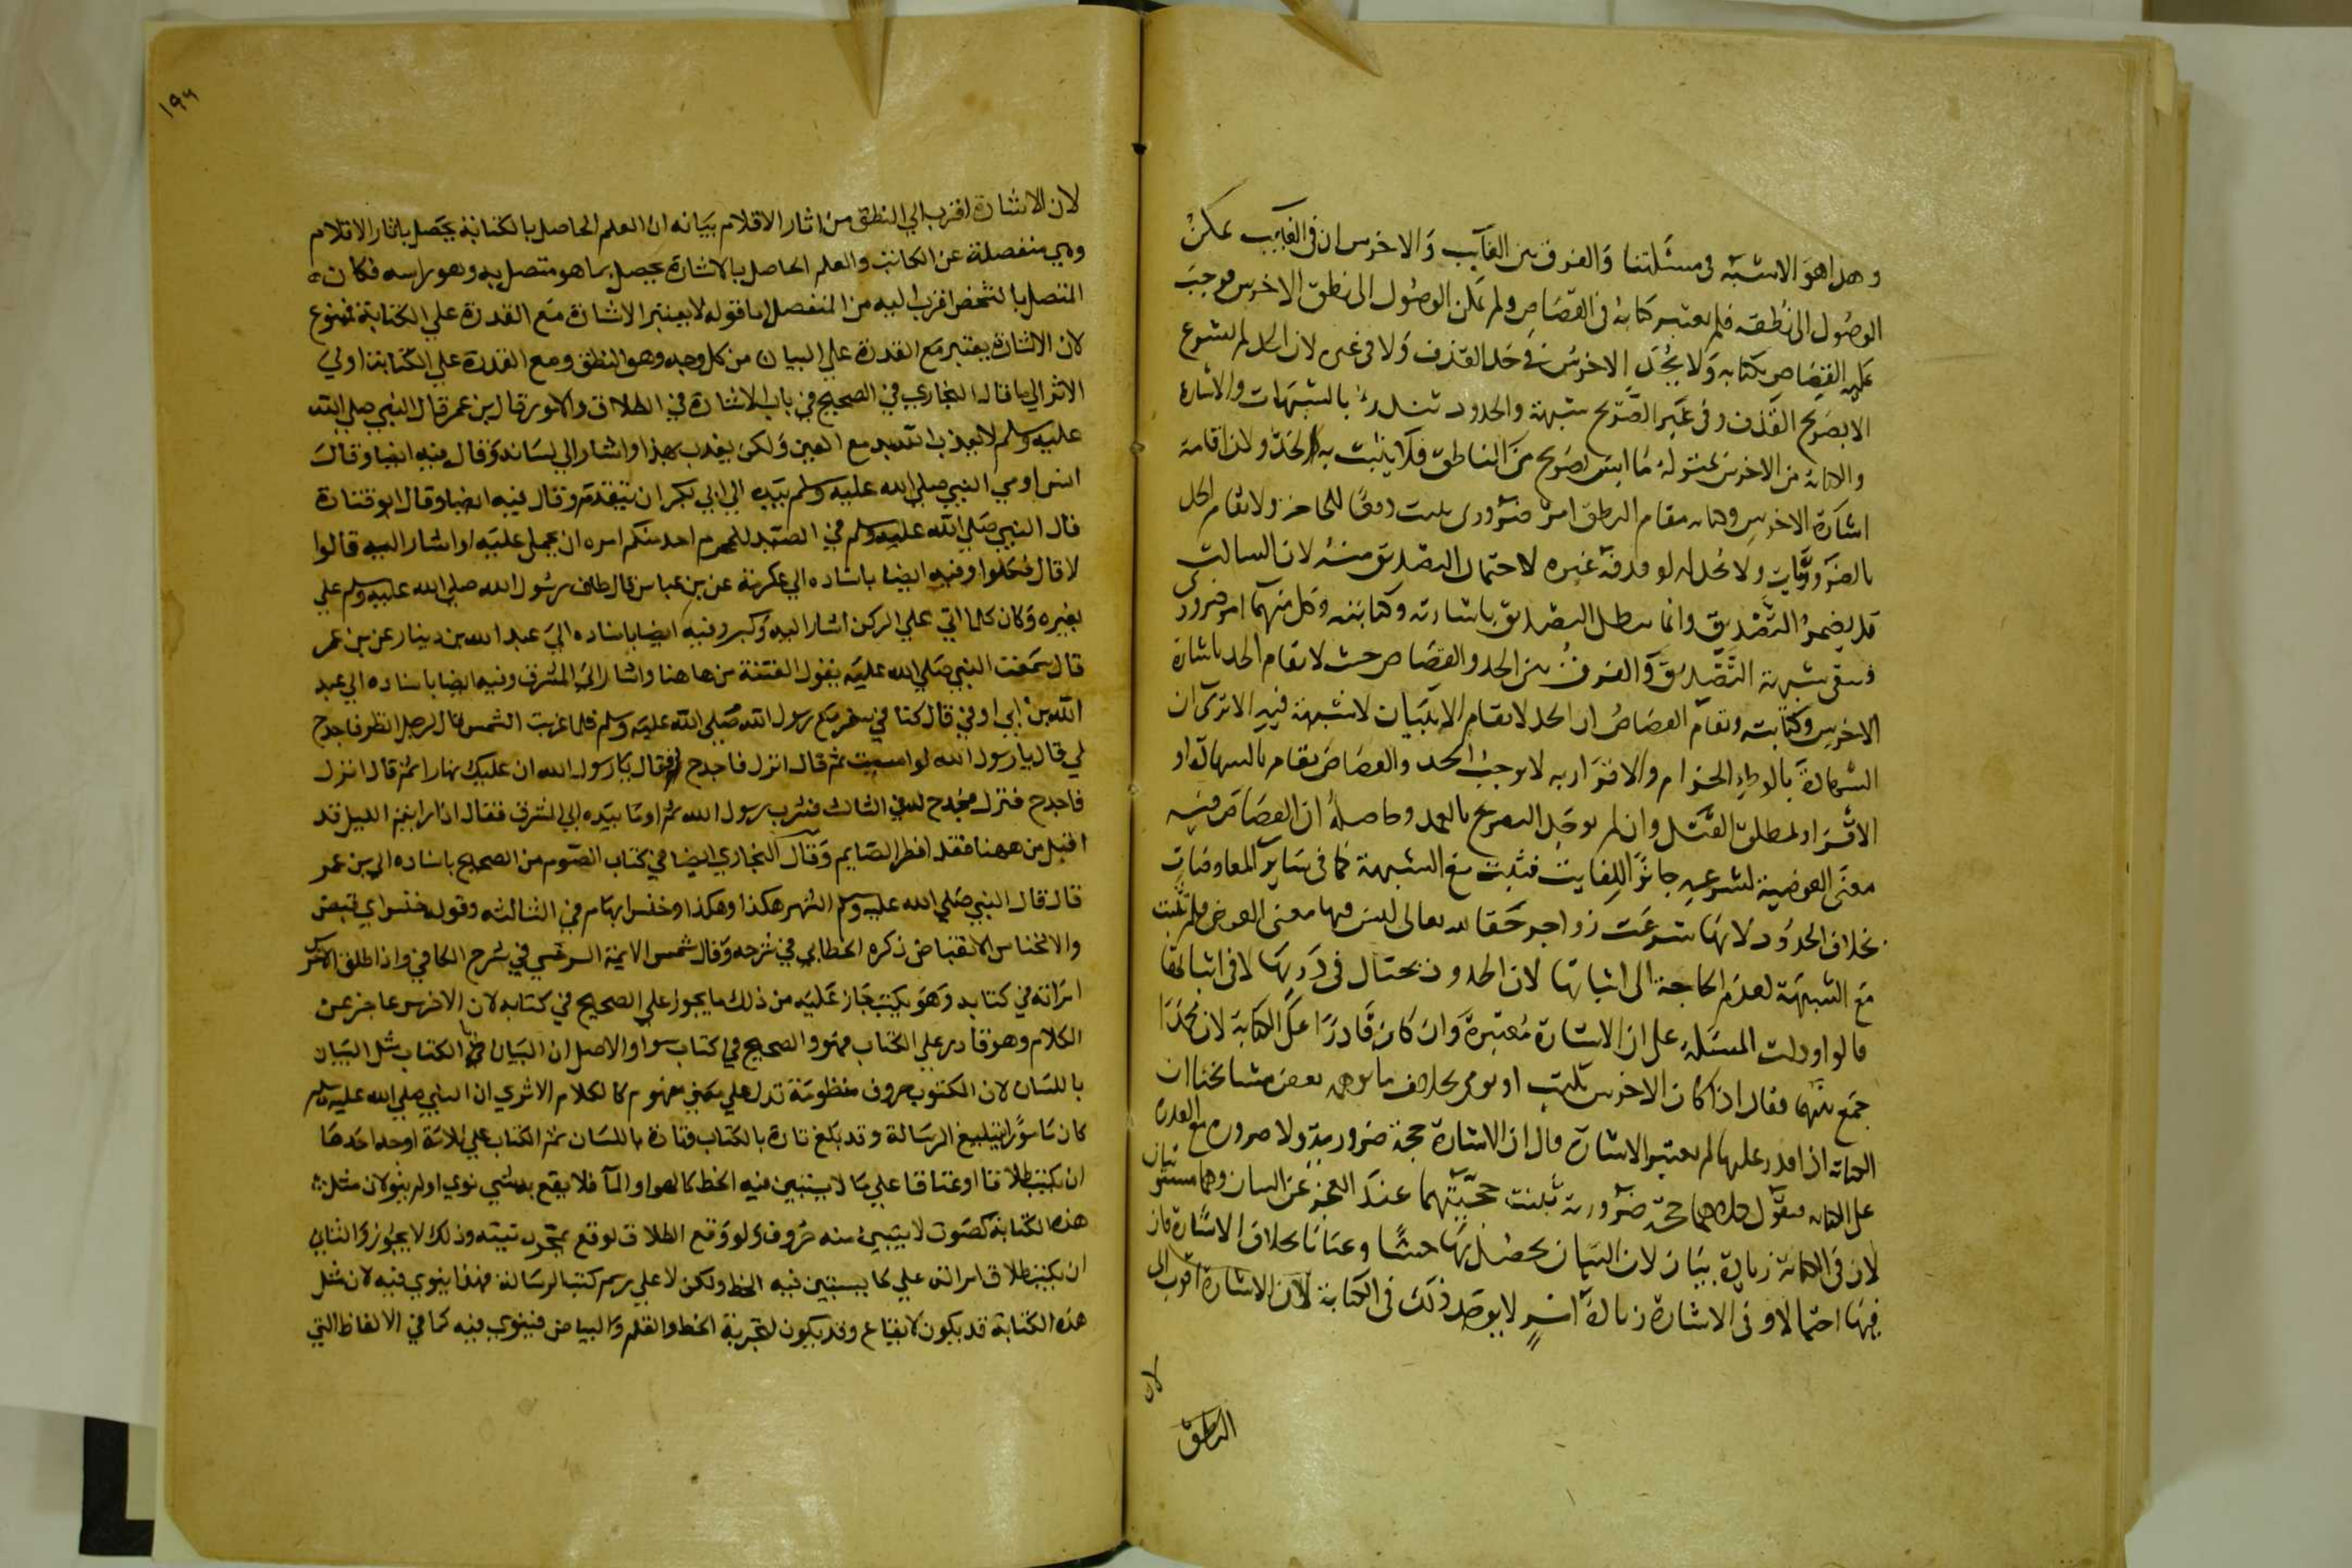 وهذا هو الاشبه في مسئلتنا والفرق بين الغايب والاخرس ان في الغايب يمكن
الوصول الى نطقه فلم يعتبر كتابه في القصاص ولم يمكن الوصول الى نطق الاخرس فوجب
عليه القصاص بكتابه ولا يحد الاخرس في حد القذف ولا في غيره لان الحد لم يشرع
الا بصريح القذف وفي غير الصريح شبهة والحدود تندرئ بالشبهات والاشارة
والكتابة من الاخرس بمنزلة ما ليس بصريح من الناطق فلا يثبت به الحد ولان اقامة
اشارة الاخرس وكتابه مقام النطق امر ضروري يثبت دفعا للحاجة ولا تقام الحد
بالضرورات ولا يحد له لو قذفه غيره لاحتمال التصديق منه لان الساكت
قد يضمر التصديق وانما يبطل التصديق باشارته وكتابته وكل منهما امر ضروري
فيبقى شبهة التصديق والفرق بين الحد والقصاص حيث لا يقام الحد باشارة
الاخرس وكتابته ويقام القصاص ان الحد لا يقام الا ببيان لا شبهة فيه الا ترى ان
الشهادة بالوطء الحرام والاقرار به لا يوجب الحد والقصاص يقام بالشهادة او
الاقرار بمطلق القتل وان لم يوجد التصريح بالعمد وحاصله ان القصاص فيه
معنى العوضية لشرعيه جابرا للفايت فثبت مع الشبهة كما في سائر المعاوضات
بخلاف الحدود لانها شرعت زواجر حقا لله تعالى ليس فيها معنى العوض فلم تثبت
مع الشبهة لعدم الحاجة الى اثباتها لان الحدود يحتال في درئها لا في اثباتها
قالوا ودلت المسئلة على ان الاشارة معتبرة وان كان قادرا على الكتابة لان محمدا
جمع بينهما فقال اذا كان الاخرس يكتب او يومي بخلاف ما توهمه بعض مشايخنا ان
الكتابة اذا قدر عليها لم يعتبر الاشارة قال ان الاشارة حجة ضرورية ولا ضرورة مع القدرة
على الكتابة فنقول كلاهما حجة ضرورية ثبتت حجيتهما عند العجز عن البيان وهما مستويان
لان في الكتابة زيادة بيان لان البيان يحصل بها حسا وعيانا بخلاف الاشارة فان
فيها احتمالا وفي الاشارة زيادة اثر لا يوجد ذلك في الكتابة لان الاشارة اقرب الى
لان
النطق
١٩٦
لان الاشارة اقرب الي النطق من اثار الاقلام بيانه ان العلم الحاصل بالكتابة يحصل باثار الاقلام
وهي منفصلة عن الكاتب والعلم الحاصل بالاشارة يحصل بما هو متصل به وهو راسه فكان
المتصل بالشخص اقرب اليه من المنفصل اما قوله لا يعتبر الاشارة مع القدرة علي الكتابة فممنوع
لان الاشارة يعتبر مع القدرة علي البيان من كل وجه وهو النطق ومع القدرة علي الكتابة اولي
الا تر الي ما قال البخاري في الصحيح في باب الاشارة في الطلاق والامور قال بن عمر قال النبي صلي الله
عليه وسلم لا يعذب الله بدمع العين ولكن يعذب بهذا واشار الي لسانه وقال فيه ايضا وقال
انس اومي النبي صلي الله عليه وسلم بيده الي ابي بكر ان يتقدم وقال فيه ايضا وقال ابو قتادة
قال النبي صلي الله عليه وسلم في الصيد للمحرم احد منكم امره ان يحمل عليه او اشار اليه قالوا
لا قال فكلوا وفيه ايضا باسناده الي عكرمة عن بن عباس قال طاف رسول الله صلي الله عليه وسلم علي
بعيره وكان كلما اتي علي الركن اشار اليه وكبر وفيه ايضا باسناده الي عبد الله بن دينار عن بن عمر
قال سمعت النبي صلي الله عليه يقول الفتنة من هاهنا واشار الي المشرق وفيه ايضا باسناده الي عبد
الله بن ابي اوفي قال كنا في سفر مع رسول الله صلي الله عليه وسلم فلما غربت الشمس قال لرجل انظر فاجدح
لي قال يارسول الله لو امسيت ثم قال انزل فاجدح فقال يارسول الله ان عليك نهارا ثم قال انزل
فاجدح فنزل فجدح له في الثالث فشرب رسول الله ثم اوما بيده الي المشرق فقال اذا رايتم الليل قد
اقبل من ههنا فقد افطر الصايم وقال البخاري ايضا في كتاب الصوم من الصحيح باسناده الي بن عمر
قال قال النبي صلي الله عليه وسلم الشهر هكذا وهكذا وخنس ابهام في الثالثه وقوله خنس اي قبض
والانخناس الانقباض ذكره الخطابي في شرحه وقال شمس الايمة السرخسي في شرح الكافي واذا طلق الاخرس
امراته في كتابه وهو يكتب جاز عليه من ذلك ما يجوز علي الصحيح في كتابه لان الاخرس عاجز عن
الكلام وهو قادر علي الكتاب فهو والصحيح في الكتاب سوا والاصل ان البيان بالكتاب مثل البيان
باللسان لان المكتوب حروف منظومة تدل علي معني مفهوم كالكلام الا تري ان النبي صلي الله عليه وسلم
كان مامورا بتبليغ الرسالة وقد بلغ تارة بالكتاب وتارة باللسان ثم الكتاب علي ثلاثة اوجه احدها
ان يكتب طلاقا او عتاقا علي ما لا يستبين فيه الخط كالهوا والمآ فلا يقع به شي نوي او لم ينو لان مثل
هذه الكتابة كصوت لا يتبين منه حروف ولو وقع الطلاق لوقع بمجرد نيته وذلك لا يجوز والثاني
ان يكتب طلاق امراته علي ما يستبين فيه الخط ولكن لا علي رسم كتب الرسالة فهذا ينوي فيه لان مثل
هذه الكتابة قد يكون لايقاع وقد يكون لتجربة الخط والقلم والبياض فينوي فيه كما في الالفاظ التي